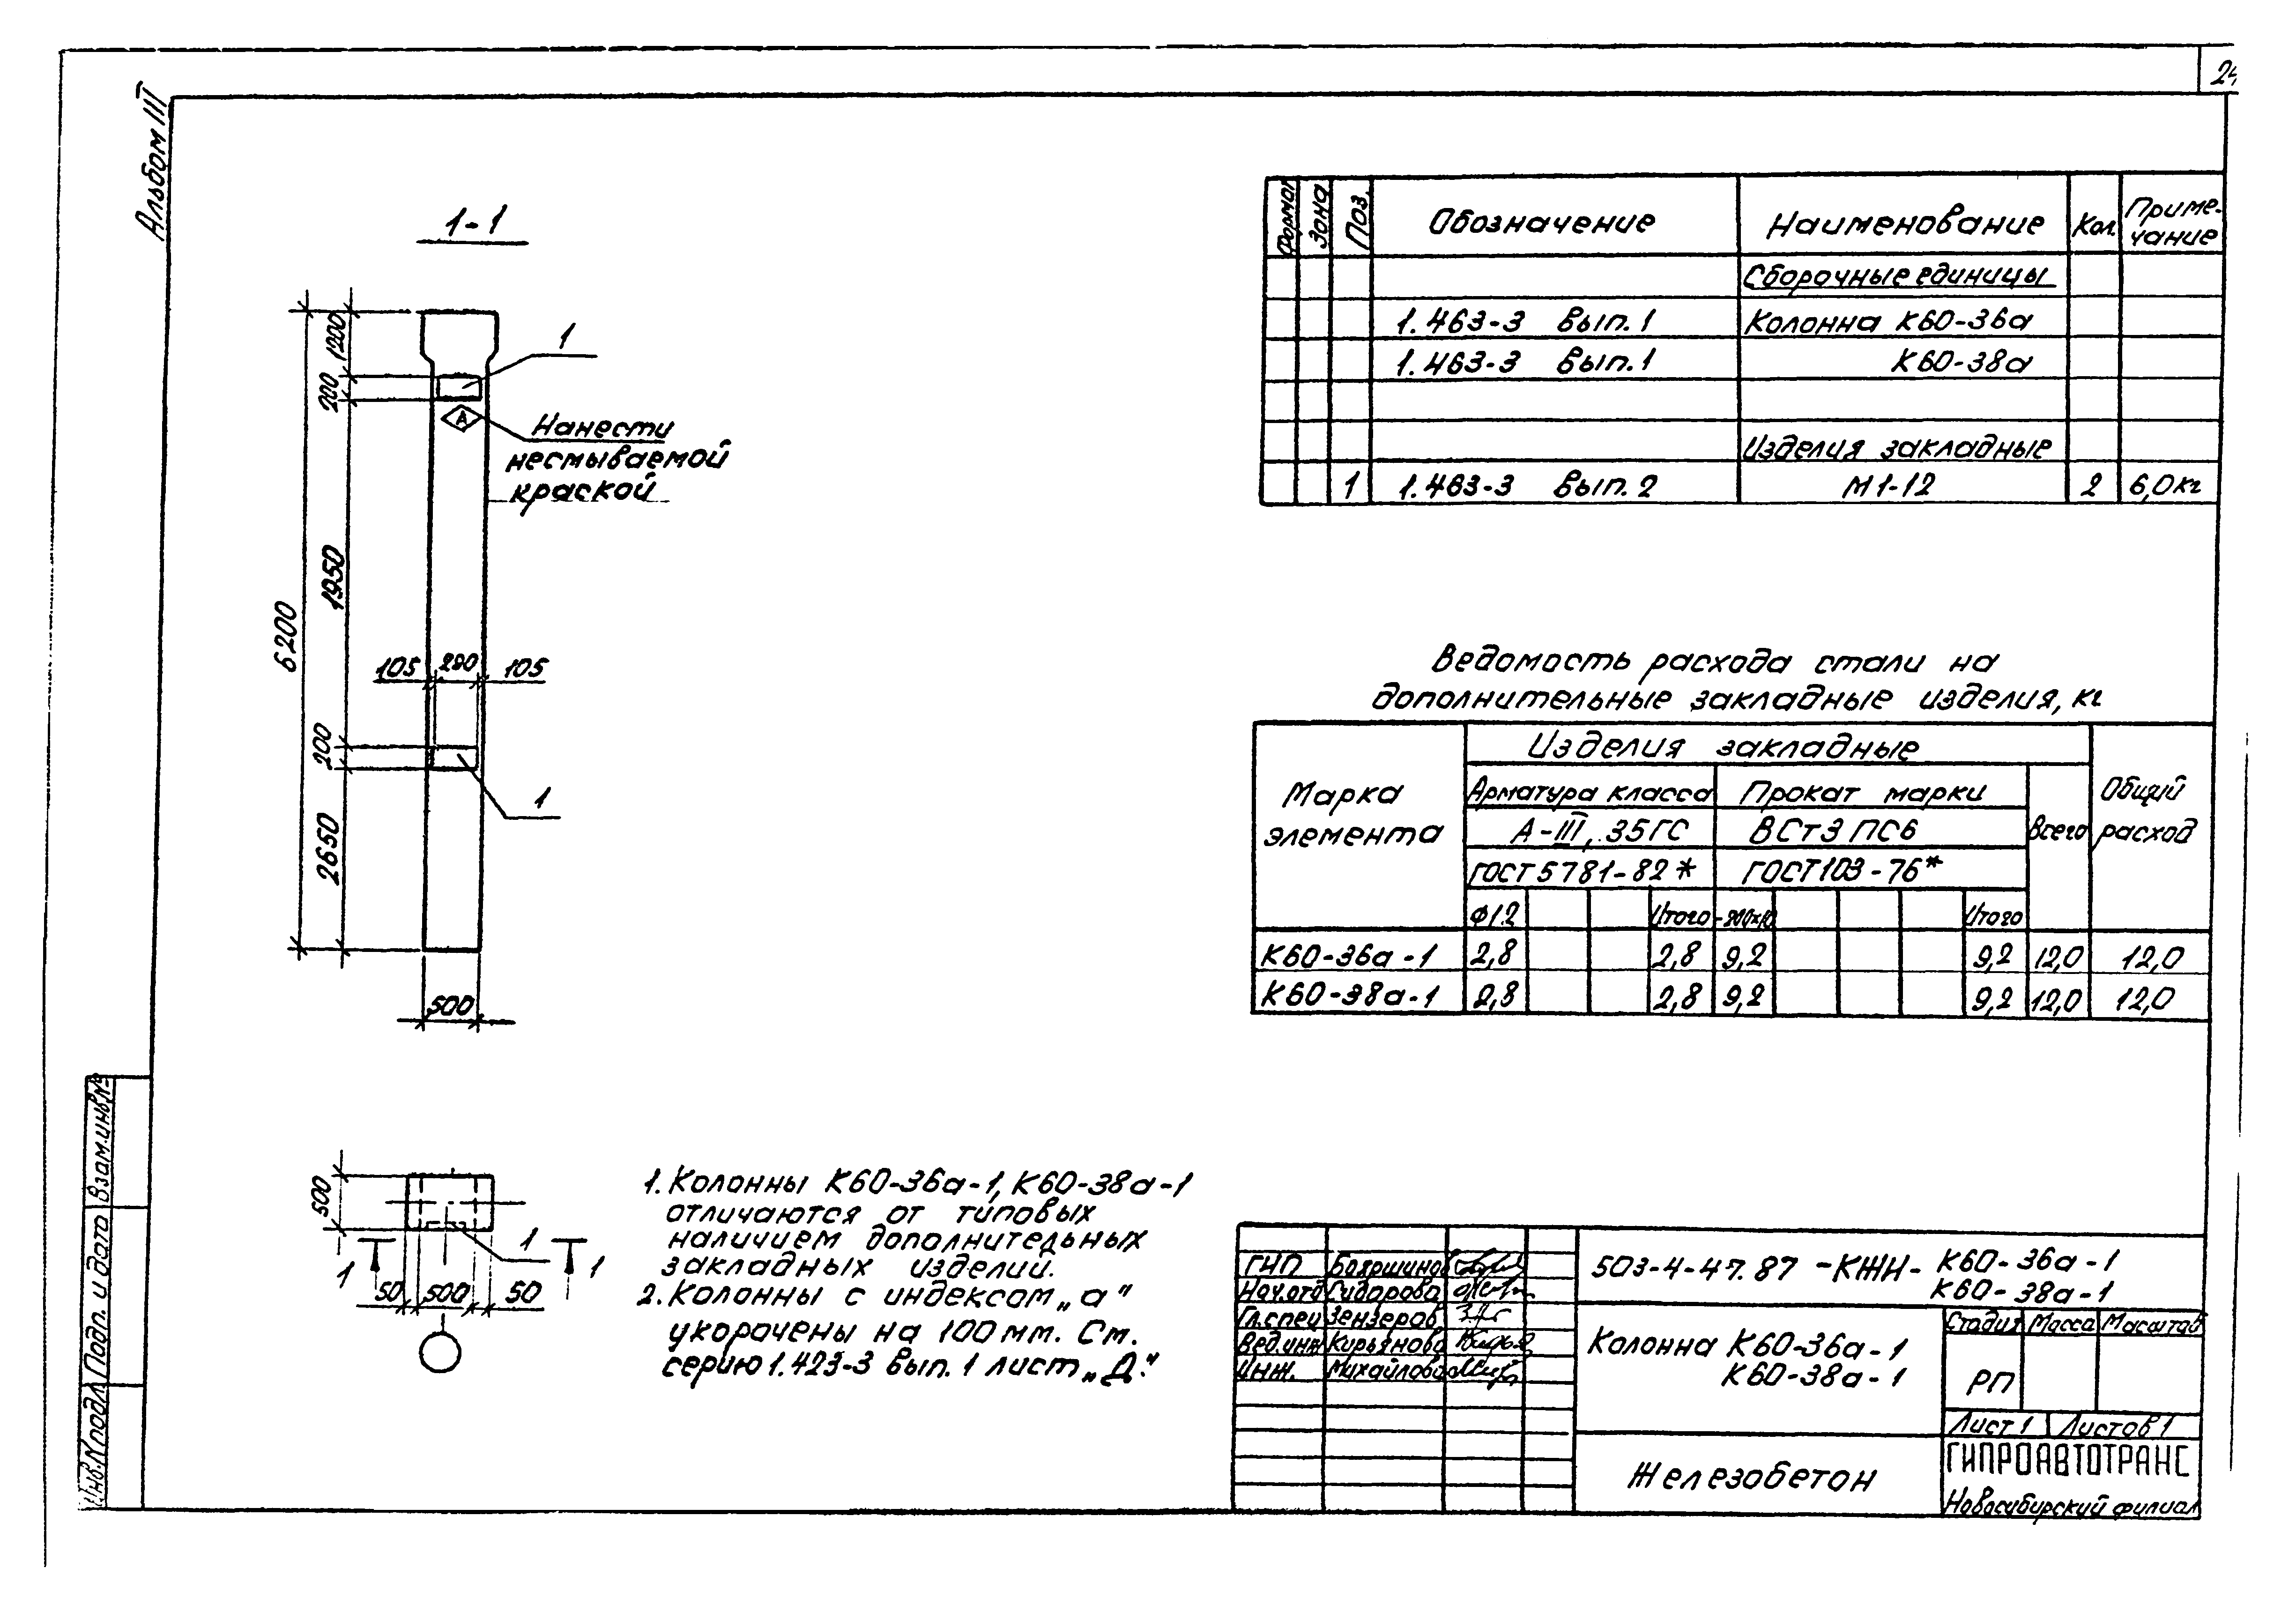 24
Альбом III
1-1
1200
200
1950
6200
200
2650
1
Нанести
несмываемой
краской
А
105 290 105
1
500
500
1
1 1
50 500 50
1. Колонны К60-36а-1, К60-38а-1
отличаются от типовых
наличием дополнительных
закладных изделий.
2. Колонны с индексом „а"
укорочены на 100 мм. См.
серию 1.423-3 вып. 1 лист „Д."
Формат Зона Поз. Обозначение Наименование Кол. Приме-
чание
Сборочные единицы
1.463-3 Вып. 1 Колонна К60-36а
1.463-3 Вып. 1 К60-38а
Изделия закладные
1 1.463-3 Вып. 2 М1-12 2 6,0кг
Ведомость расхода стали на
дополнительные закладные изделия, кг
Марка
элемента
Изделия закладные
Арматура класса Прокат марки
А-III, 35ГС ВСт3 ПС6
ГОСТ 5781-82* ГОСТ103-76*
Всего
Общий
расход
Ф12 Итого -200х10 Итого
К60-36а-1 2,8 2,8 9,2 9,2 12,0 12,0
К60-38а-1 2,8 2,8 9,2 9,2 12,0 12,0
ГИП Бояршинов
Нач.отд Сидорова
Гл.спец Зензеров
Вед.инж Кирьянова
Инж. Михайлова
503-4-47.87 -КЖИ- К60-36а-1
К60-38а-1
Колонна К60-36а-1
К60-38а-1
Стадия Масса Масштаб
РП
Лист 1 Листов 1
Железобетон
ГИПРОАВТОТРАНС
Новосибирский филиал
Инв.№подл. Подп. и дата Взам.инв№